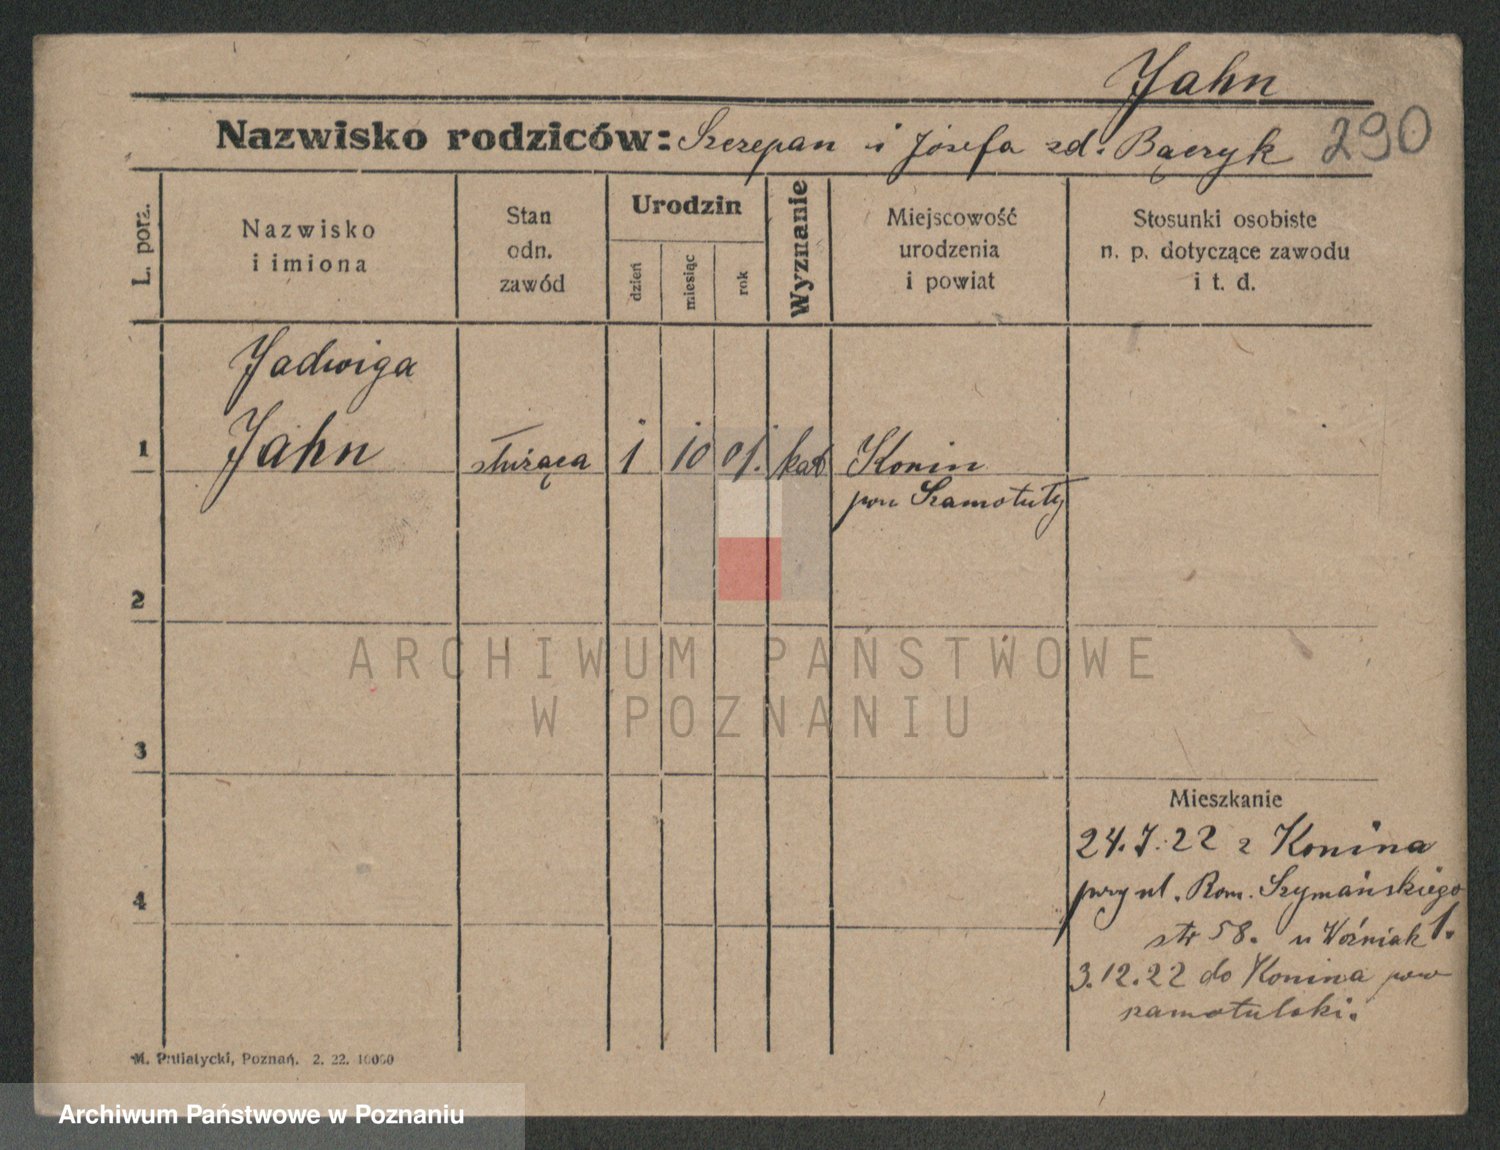 Jahn
Nazwisko rodziców: Szczepan i Józefa zd. Bączyk 290
L. porz.
Nazwisko
i imiona
Stan
odn.
zawód
Urodzin
dzień
miesiąc
rok
Wyznanie
Miejscowość
urodzenia
i powiat
Stosunki osobiste
n. p. dotyczące zawodu
i t. d.
Jadwiga
1 Jahn służąca 1 10 01. kat Konin
pow Szamotuły
2
ARCHIWUM PAŃSTWOWE
W POZNANIU
3
Mieszkanie
24.7.22 z Konina
4 przy ul. Rom. Szymańskiego
str 58. u Woźniak 1.
3.12.22 do Konina pow
szamotulski.
M. Putiatycki, Poznań. 2. 22. 10000
Archiwum Państwowe w Poznaniu